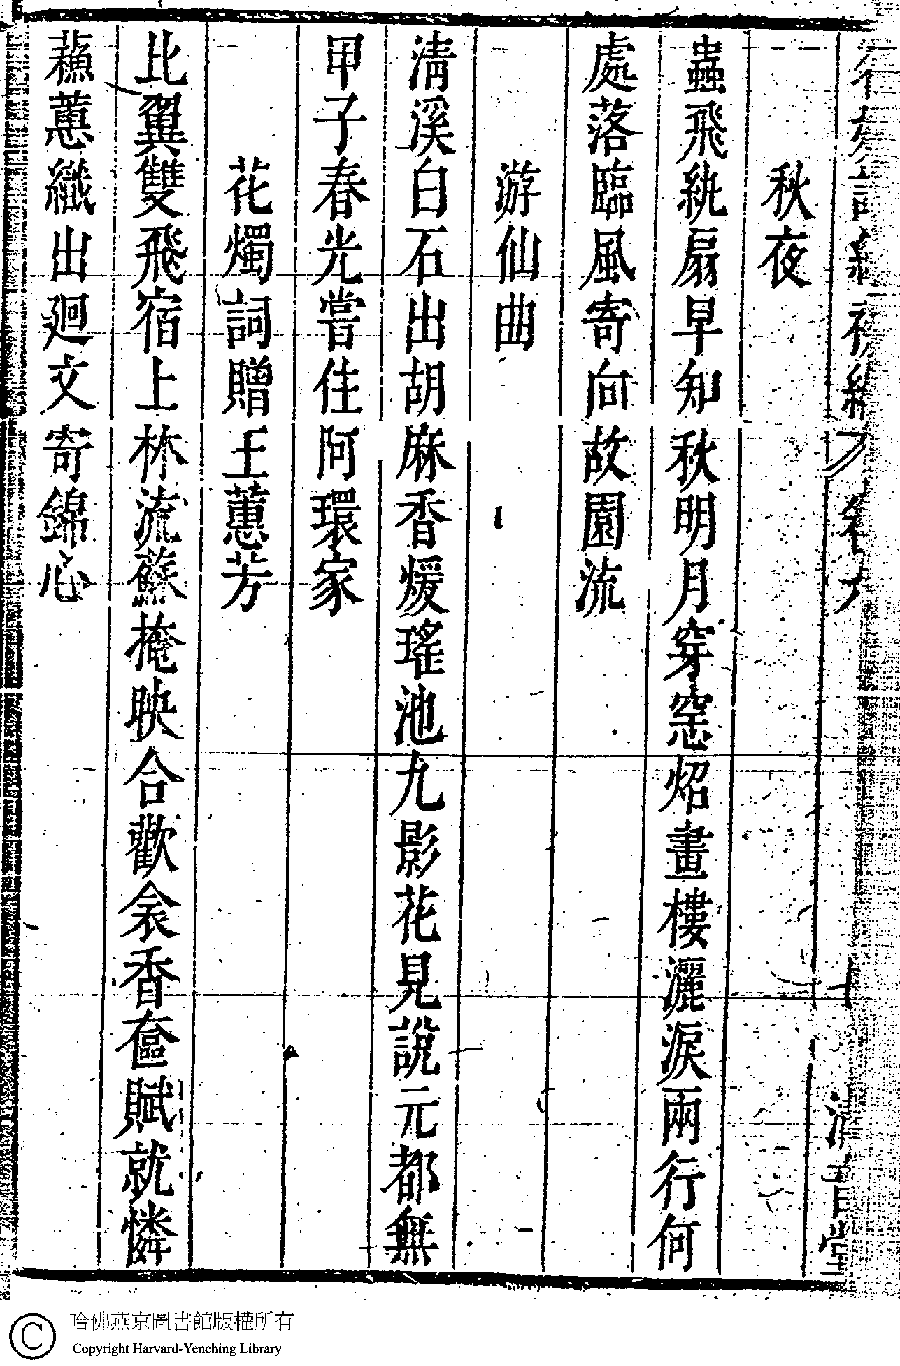 秋夜
蟲飛紈扇早知秋明月穿窓炤畫樓灑淚兩行何
處落臨風寄向故園流
游仙曲
淸溪白石出胡麻香煖瑤池九影花見說元都無
甲子春光嘗住阿環家
花燭詞贈王蕙芳
比翼雙飛宿上林流蘇掩映合歡衾香奩賦就憐
蘓蕙纖出廻文寄錦心
哈佛燕京圖書館版權所有
Copyright Harvard-Yenching Library